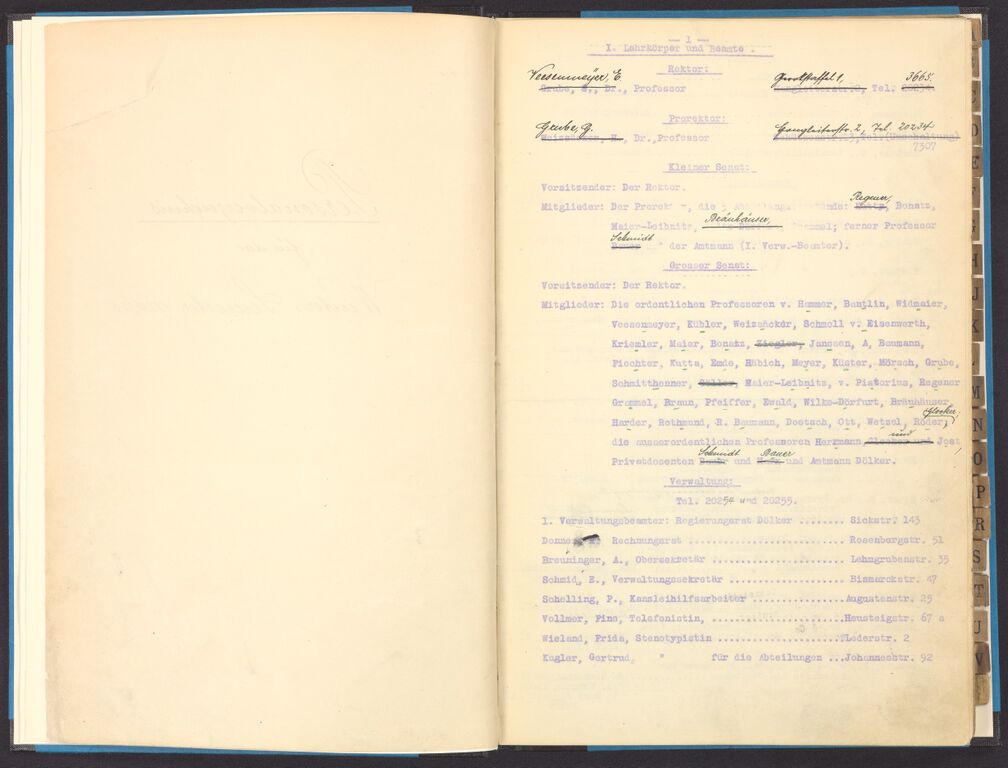 — 1 —
I. Lehrkörper und Beamte.
Rektor:
Veesenmeyer, E. 3665.
Grube, G., Dr., Professor Tel. 20234
Prorektor:
Grube, G. Gaugleiterstr. 2, Tel. 20234
Weizsäcker, H., Dr., Professor (Umschaltung)
7307
Kleiner Senat:
Vorsitzender: Der Rektor.
Regener,
Mitglieder: Der Prorektor, die 5 Bonatz,
Bräuhäuser,
Maier-Leibnitz, Grammel; ferner Professor
Schmidt
Bauer der Amtmann (I. Verw.-Beamter).
Grosser Senat:
Vorsitzender: Der Rektor.
Mitglieder: Die ordentlichen Professoren v. Hammer, Bantlin, Widmaier,
Veesenmeyer, Kübler, Weizsäcker, Schmoll v. Eisenwerth,
Kriemler, Maier, Bonatz, Ziegler, Janssen, A. Baumann,
Fiechter, Kutta, Emde, Häbich, Meyer, Küster, Mörsch, Grube,
Schmitthenner, Göller, Maier-Leibnitz, v. Pistorius, Regener
Grammel, Braun, Pfeiffer, Ewald, Wilke-Dörfurt, Bräuhäuser,
Glocker,
Harder, Rothmund, R. Baumann, Doetsch, Ott, Wetzel, Röder,
und
die ausserordentlichen Professoren Herrmann, Glocker und Jost
Schmidt Bauer
Privatdozenten und und Amtmann Dölker.
Verwaltung:
Tel. 20254 und 20255.
1. Verwaltungsbeamter: Regierungsrat Dölker ........ Sickstr. 143
Donner Rechnungsrat ........................ Rosenbergstr. 51
Breuninger, A., Obersekretär ..................... Lehmgrubenstr. 35
Schmid, E., Verwaltungssekretär .................. Bismarckstr. 47
Schelling, P., Kanzleihilfsarbeiter .............. Augustenstr. 25
Vollmer, Pine, Telefonistin, ..................... Heusteigstr. 67 a
Wieland, Frida, Stenotypistin .................... Lederstr. 2
Kugler, Gertrud, " für die Abteilungen ...Johannesstr. 92
A
E
F
G
H
J
K
L
M
N
O
P
R
S
T
U
V